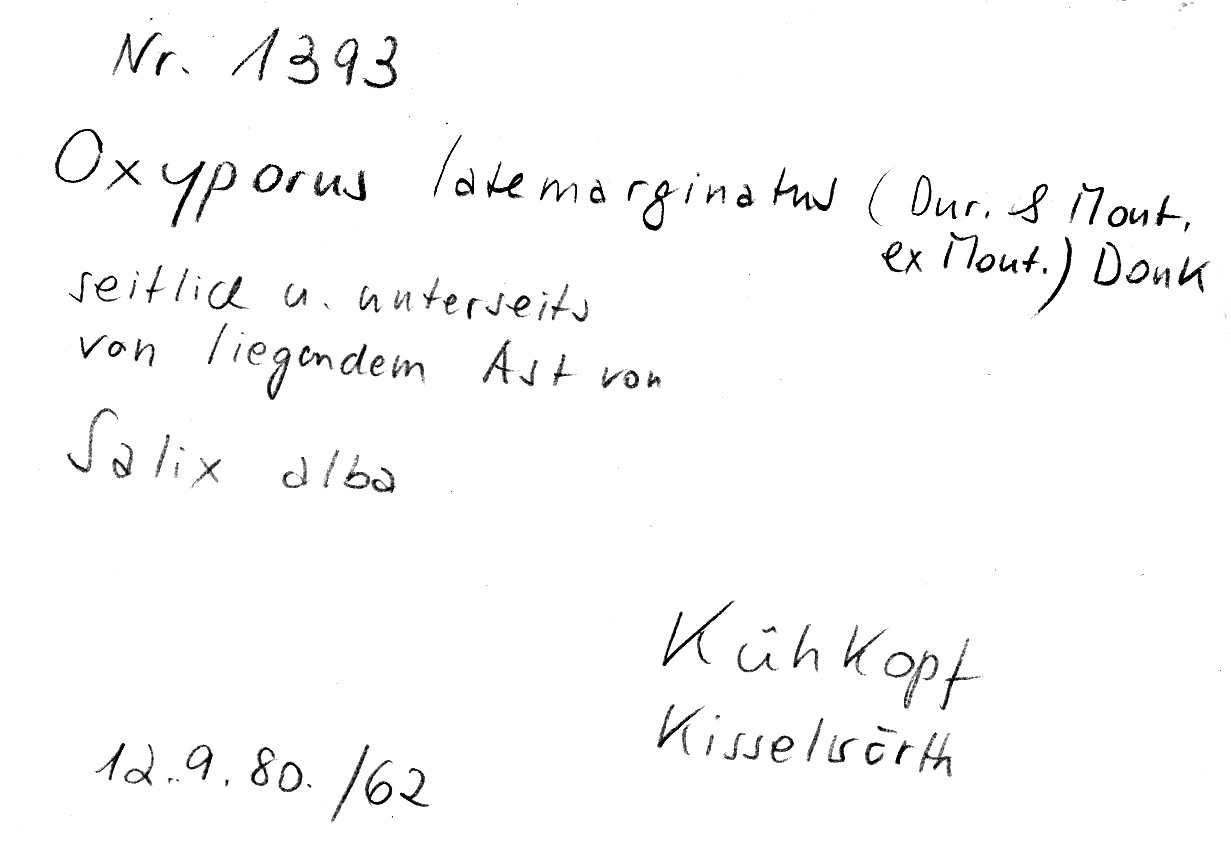 Nr. 1393
Oxyporus latemarginatus (Dur. & Mont.
ex Mont.) Donk
seitlich u. unterseits
von liegendem Ast von
Salix alba
Kühkopf
Kisselwörth
12.9.80./62